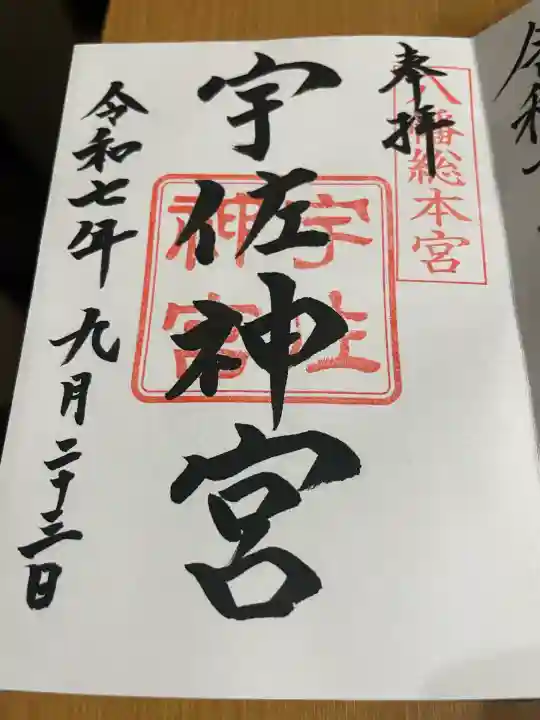 奉拝
八幡総本宮
宇佐神宮
宇佐
神宮
令和七年 九月二十三日
令和